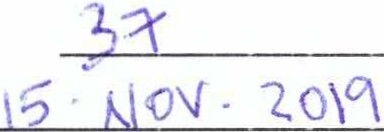 37
15. NOV. 2019